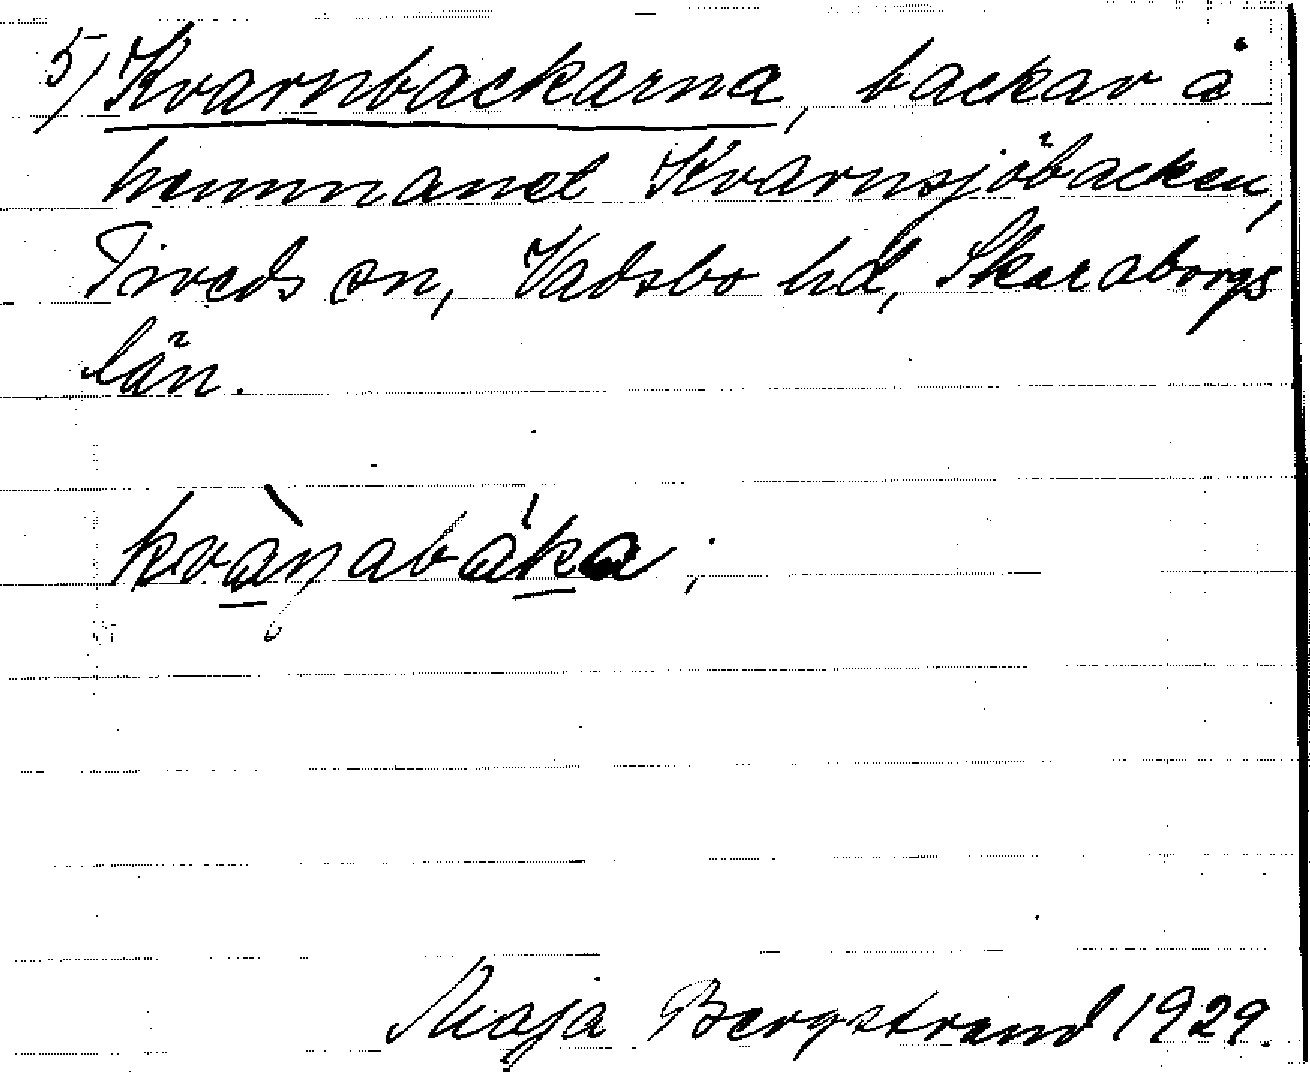 5) Kvarnbackarna, backar å
hemmanet Kvarnsjöbacken,
Tiveds sn, Vadsbo hd, Skaraborgs
län.
kvàŋabáka,
Maja Bergstrand 1929.